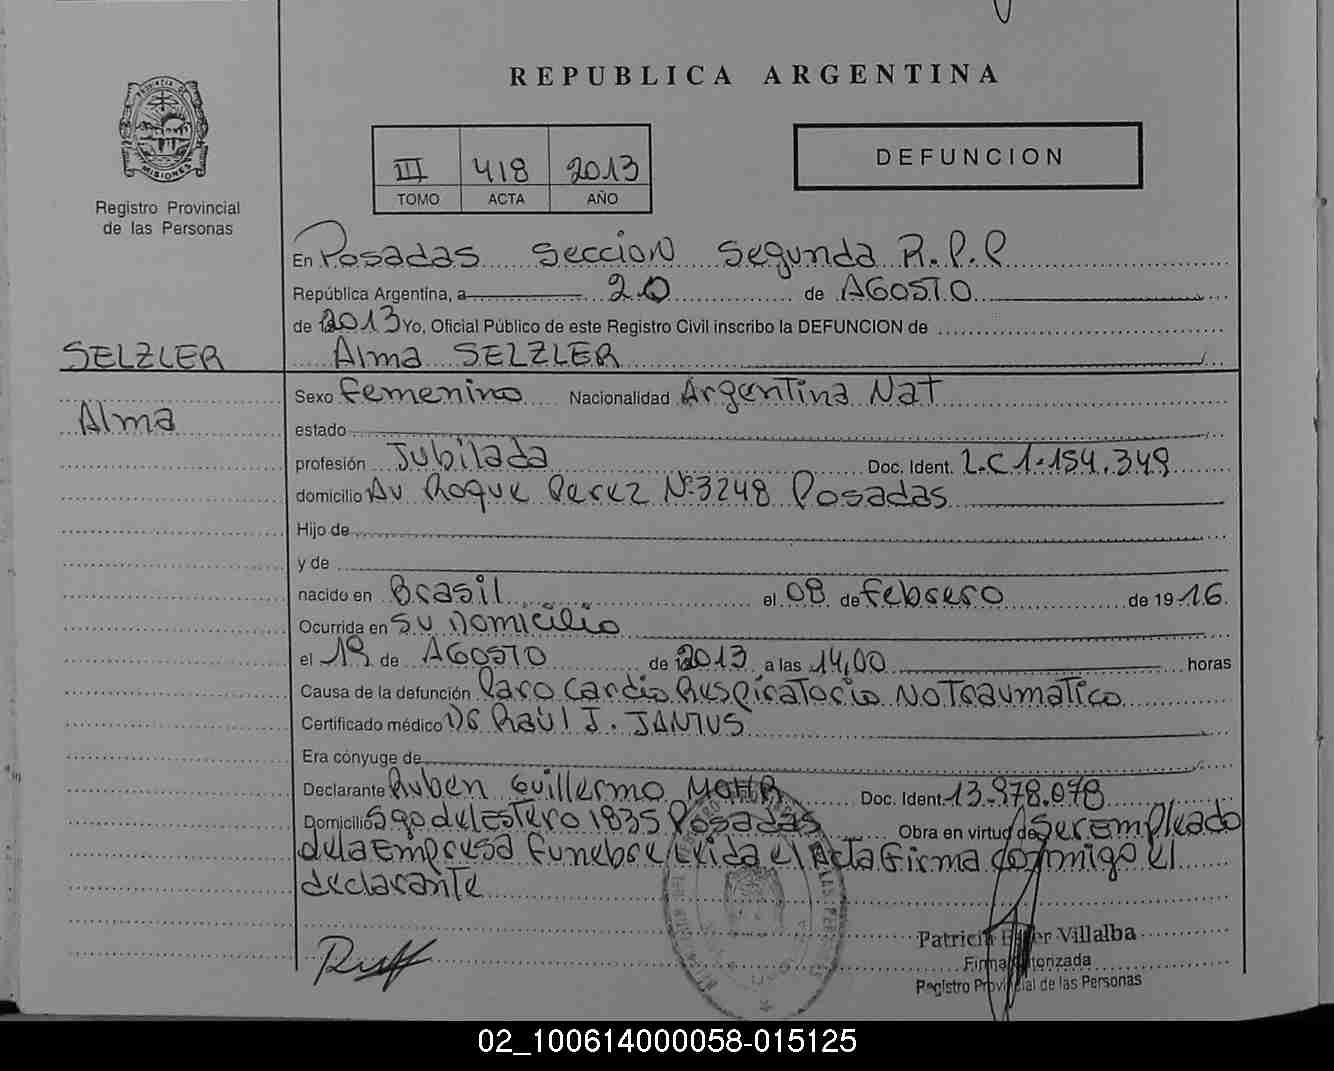 REPUBLICA ARGENTINA
PROVINCIA DE
MISIONES
Registro Provincial
de las Personas
III 418 2013
TOMO ACTA AÑO
DEFUNCION
En Posadas Seccion Segunda R.P.P
República Argentina, a 20 de AGOSTO
de 2013 Yo, Oficial Público de este Registro Civil inscribo la DEFUNCION de
SELZLER
Alma SELZLER
Alma
Sexo Femenino Nacionalidad Argentina Nat
estado
profesión Jubilada Doc. Ident. L.C 1.154.349
domicilio Av Roque Perez Nº 3248 Posadas
Hijo de
y de
nacido en Brasil el 08 de Febrero de 1916
Ocurrida en su Domicilio
el 19 de AGOSTO de 2013 a las 14,00 horas
Causa de la defunción Paro Cardio Respiratorio No Traumatico
Certificado médico Dr Raül J. JANTUS
Era cónyuge de
Declarante Ruben Guillermo MOHR Doc. Ident. 13.978.078
Domicilio Sgo del Estero 1835 Posadas Obra en virtud de ser Empleado
de la Empresa Funebre Leida el Acta Firma conmigo el
declarante
Patricia Ester Villalba
Firma Autorizada
Registro Provincial de las Personas
02_100614000058-015125